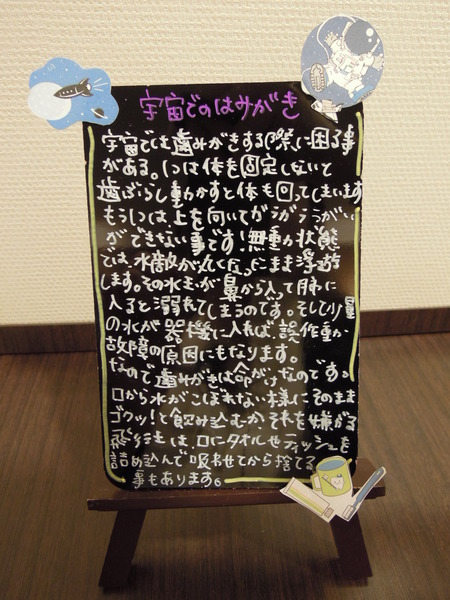 宇宙でのはみがき
宇宙では歯みがきをする際に困る事
がある。1つは体を固定しないで
歯ぶらし動かすと体も回ってしまいます
もう1つは上を向いてがらがらうがい
ができない事です!無重力状態
では、水滴が丸くなったまま浮遊
します。その水玉が鼻から入って肺に
入ると溺れてしまうのです。そして少量
の水が器機に入れば、誤作動か
故障の原因にもなります。
なので歯みがきは命がけなのです。
口から水がこぼれない様にそのまま
ゴクッ!と飲み込むか、それを嫌がる
飛行士は、口にタオルやティッシュを
詰め込んで吸わせてから捨てる
事もあります。